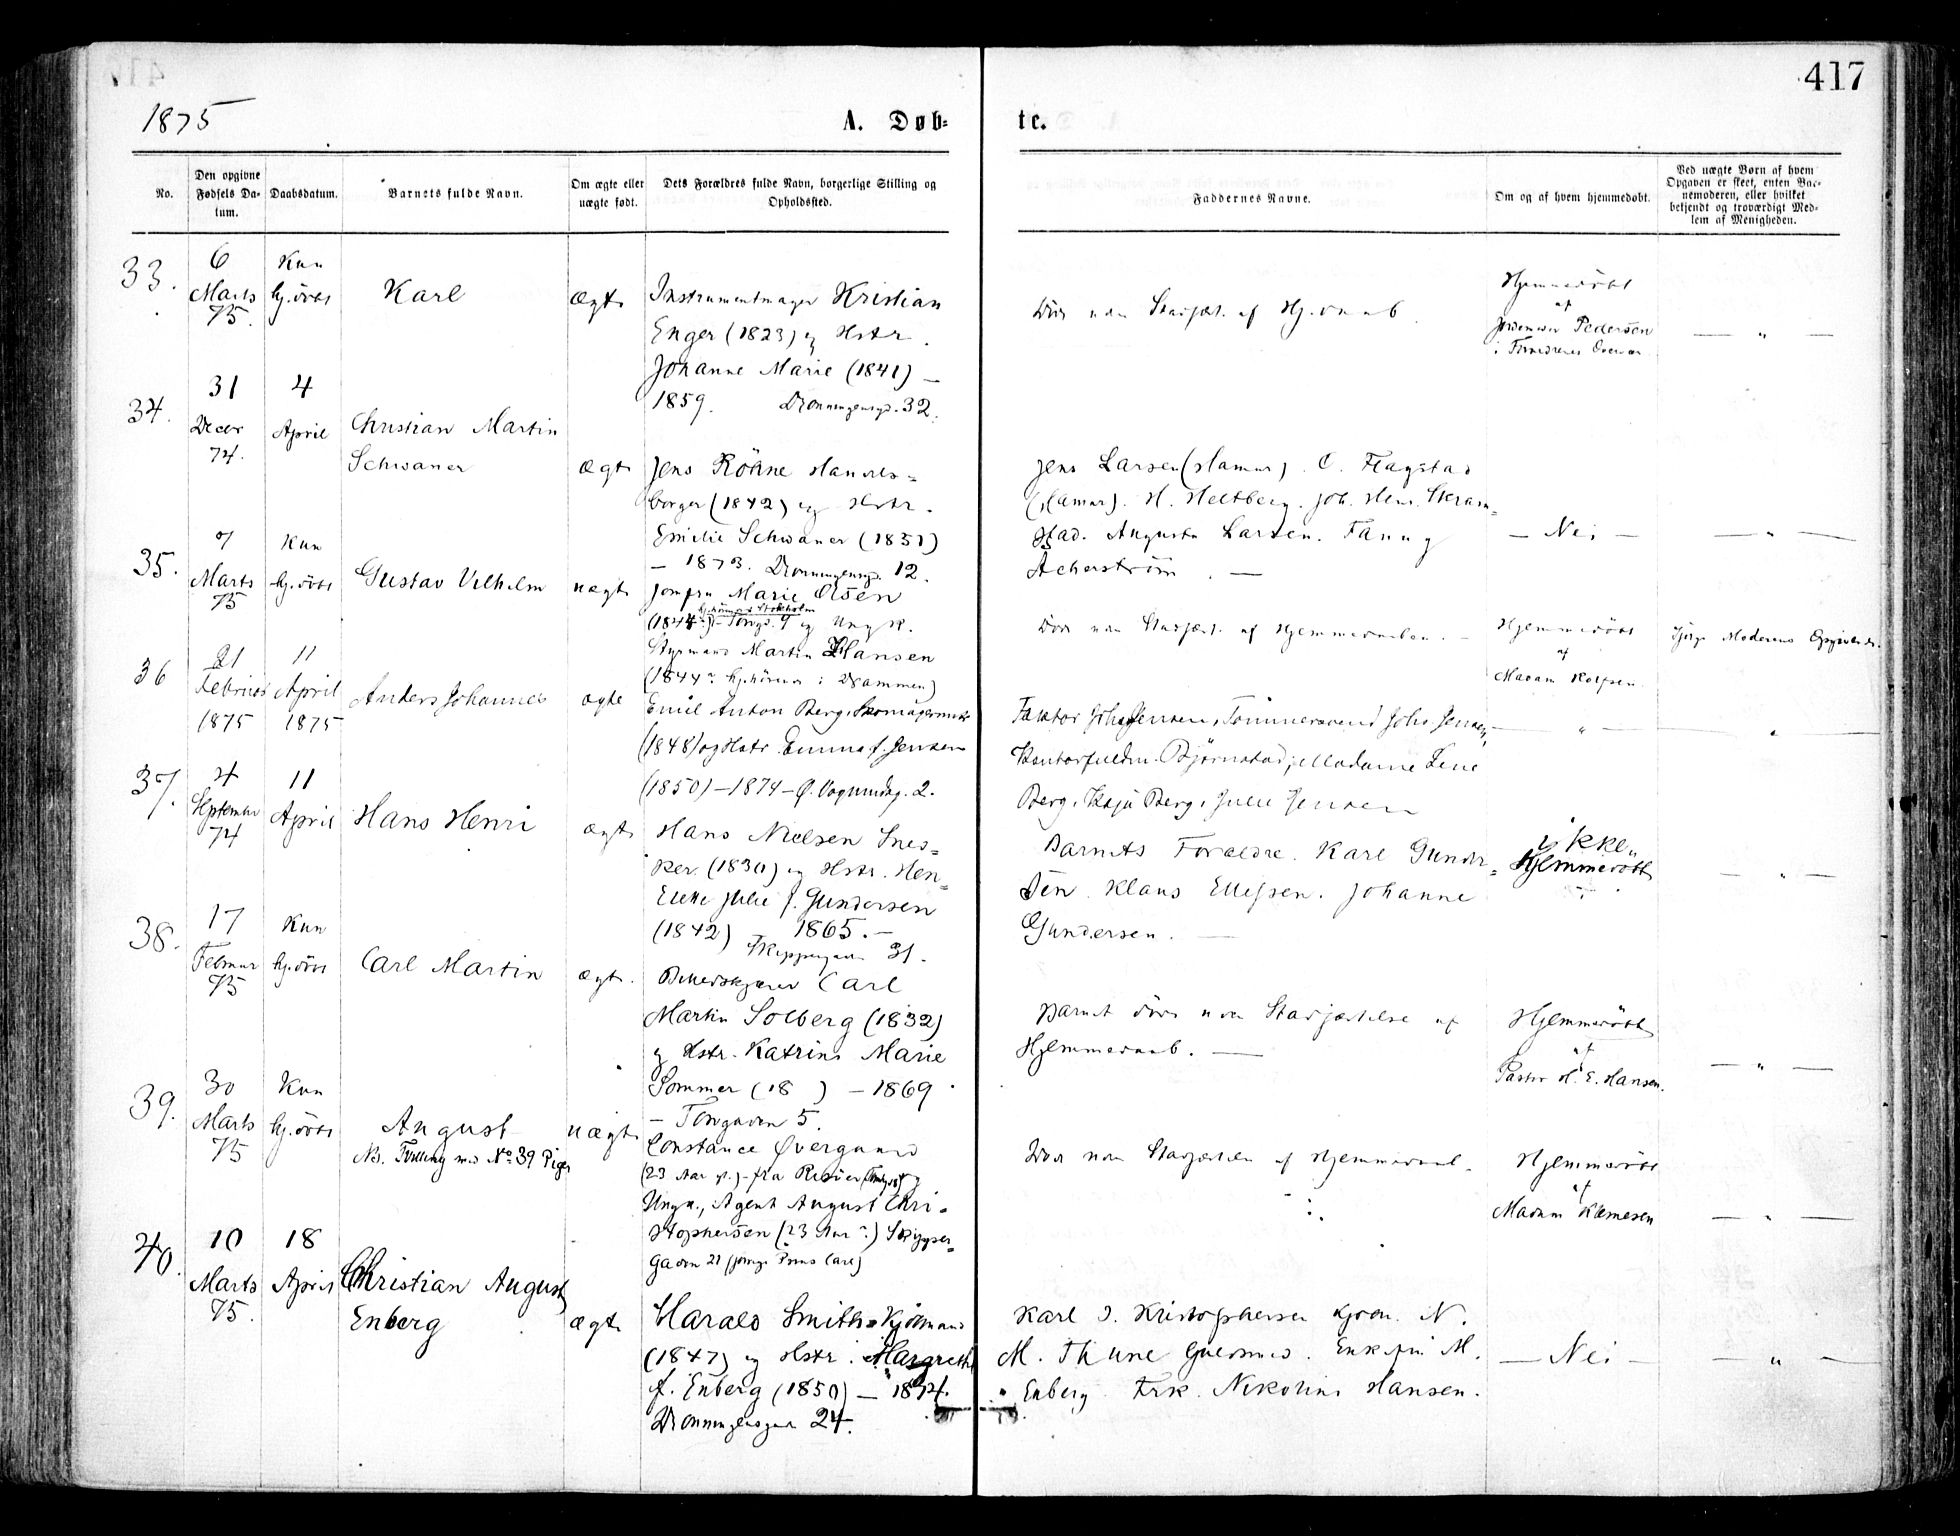 417
1875
A. Døb-
te.
No.
Den opgivne Fødsels Da-
tum.
Daabsdatum.
Barnets fulde Navn.
Om ægte eller
uægte født.
Dets Forældres fulde Navn, borgerlige Stilling og
Opholdssted.
Faddernes Navne.
Om og af hvem hjemmedøbt.
Ved uægte Børn af hvem
Opgaven er skeet, enten Bar-
nemoderen, eller hvilket
bekjendt og troværdigt Med-
lem af Menigheden.
33.
6
Marts
75.
Kun
hj.døbt
Karl
ægte
Instrumentmager Kristian
Enger (1823) og Hstr.
Johanne Marie (1841) —
1859. Dronningensgd. 32.
Død uden Stadfæst. af Hj.daab.
Hjemmedøbt
af
Jordemor Pedersen
i Forældrenes
— " —
34.
31
Decbr
74.
4
April
Christian Martin
Schwaner
ægte
Jens Röhne Handels-
borger (1842) og Hstr.
Emilie Schwaner (1851)
— 1873. Dronningensgd. 12.
Jens Larsen (Hamar). O. Flagstad
(Hamar). H. Heltberg. Joh. Hen. Skram-
stad. Augusta Larsen. Fanny
Acherström. —
— Nei —
— " —
35.
7
Marts
75
Kun
hj.døbt
Gustav Vilhelm
uægte
Jomfru Marie Olsen
hj.hörende Stokholm
(1844?) - Torvgd. 9 og Ungk.
Styrmand Martin Hansen
(1844? hj.hörende i Drammen)
Död uden Stadfæst. af Hjemmedaaben. —
Hjemmedøbt
af
Madam Rolfsen.
Ifølge Moderens Opgivende.
36
21
Februar
1875
11
April
1875
Anders Johannes
ægte
Emil Anton Berg, Skomagermester
(1848) og Hstr. Emma f. Jensen
(1850) — 1874 — Ø. Vognmdsg. 2.
Faktor Johs Jensen, Tømmersvend Johs Jensen,
Kontorfuldm. Bjørnstad, Madame Lene
Berg, Kaja Berg, Julie Jensen
— " —
— " —
37.
4
September
74
11
April
Hans Henri
ægte
Hans Nielsen Sned-
ker (1830) og Hstr. Hen-
Julie f. Gundersen
(1842) 1865. —
Skippergaden 31.
Barnets Forældre. Karl Gunder-
sen. Klaus Ellefsen. Johanne
Gundersen. —
ikke
Hjemmedøbt
— " —
38.
17
Februar
75
Kun
hj.døbt
Carl Martin
ægte.
Billedskjærer Carl
Martin Solberg (1832)
og Hstr. Katrine Marie
Sommer (18 ) — 1869.
— Torvgaden 5.
Barnet døde uden Stadfæstelse af
Hjemmedaab. —
Hjemmedøbt
af
Pastor H. E. Hansen.
— " —
39.
30
Marts
75
Kun
hj.døbt
August
NB. Tvilling med No 39 Piger
uægte
Constance Øvergaard
(23 Aar gl.) - fra Risöer og
Ungk., Agent August Chri-
stophersen (23 Aar?) Skipper-
gaden 21
Död uden Stadfæstelse af Hjemmedaab.
Hjemmedøbt
af
Madam Klemesen
— " —
40.
10
Marts
75.
18
April
Christian August
Enberg
ægte
Harald Smith, Kjøbmand
(1847) og Hstr. Margrethe
f. Enberg (1850) — 1874.
Dronningensgade 24.
Karl J. Kristophersen N.
M. Thune Enkefru M.
Enberg. Frk. Nikoline Hansen.
— Nei —
— " —